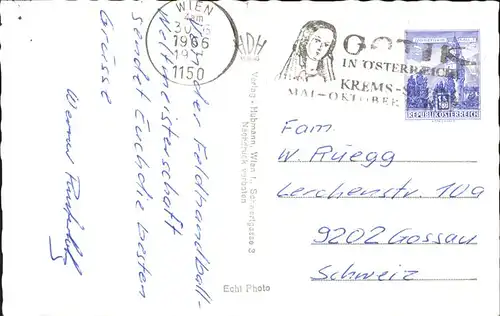 Von der Feldhandball-
Weltmeisterschaft
sendet Euch die besten
Grüsse
Werner
WIEN
1966
1150
GOTIK
IN ÖSTERREICH
KREMS-S
MAI-OKTOBER
REPUBLIK ÖSTERREICH
Verlag - Hubmann, Wien
Nachdruck verboten
Echt Photo
Fam.
W. Rüegg
Lerchenstr. 10a
9202 Gossau
Schweiz